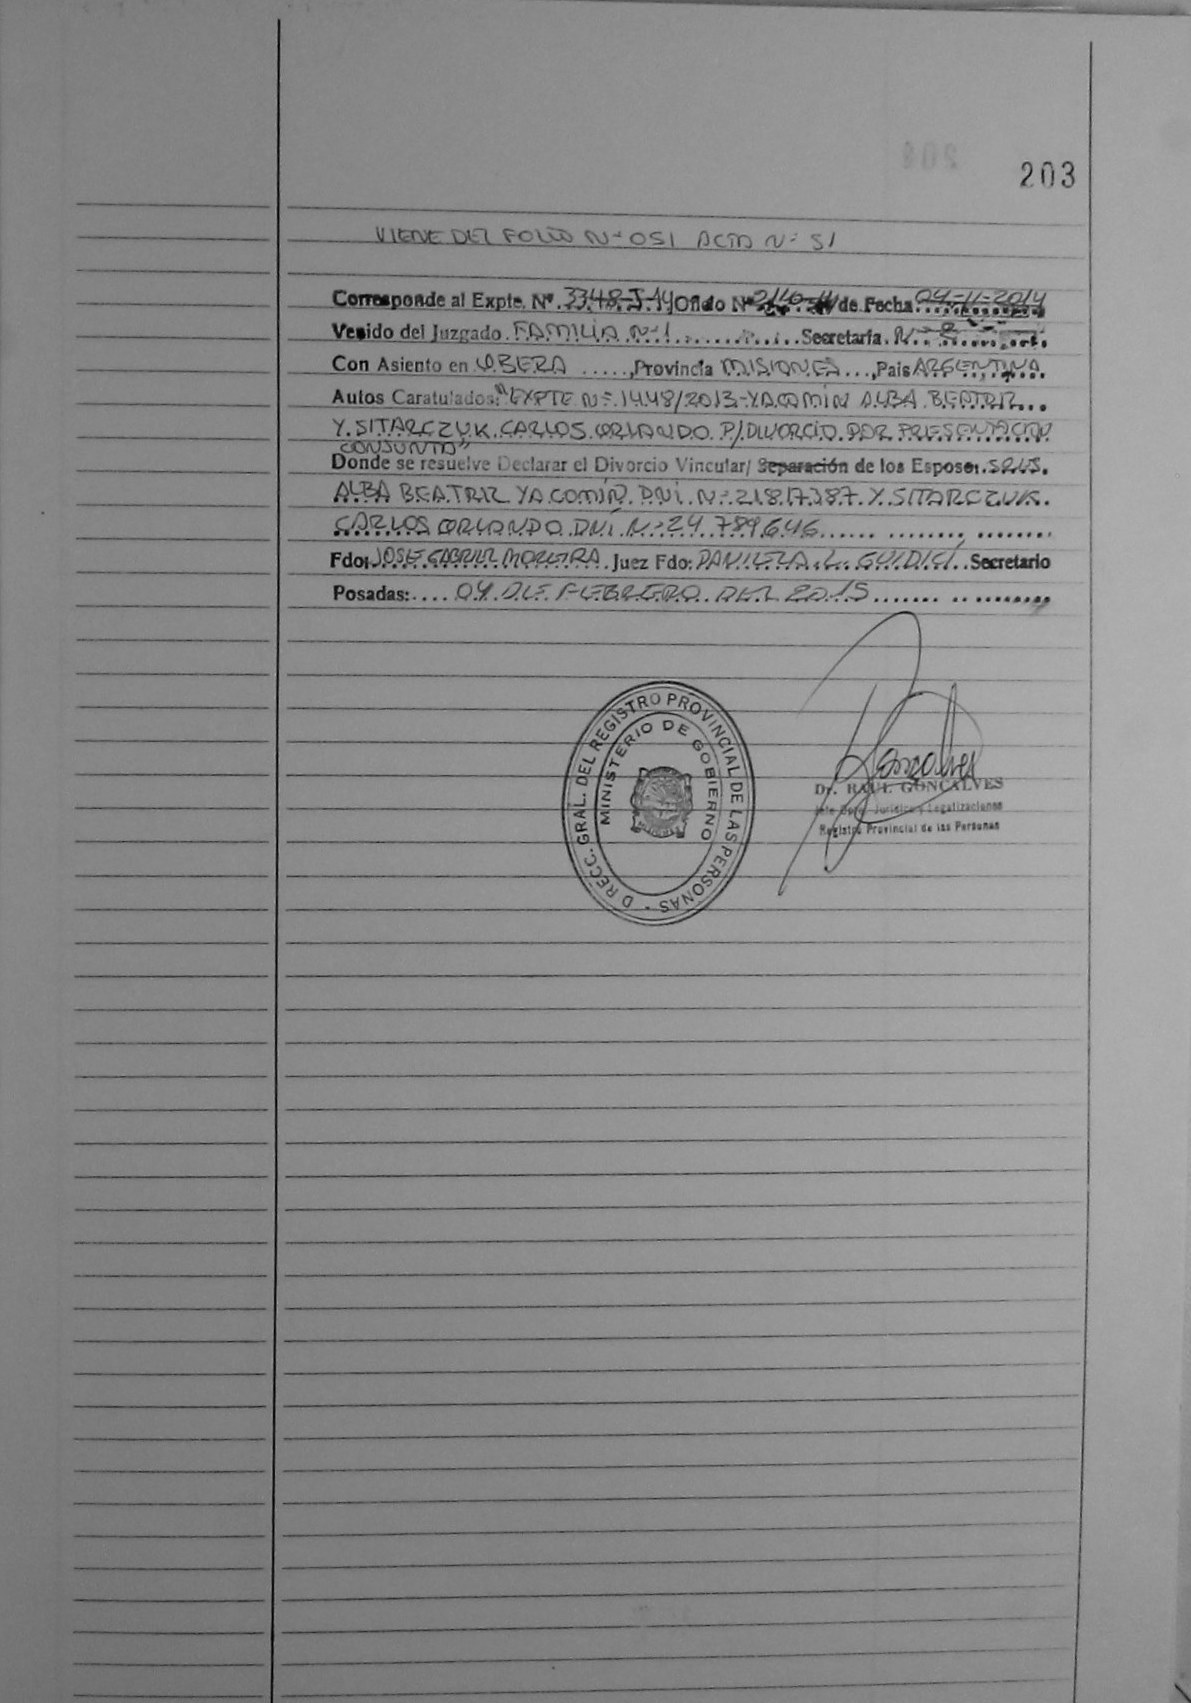 203
VIENE DEL FOLIO Nº 051 ACTA Nº 51
Corresponde al Expte. Nº. 3348-J-14 Oficio Nº 2116-14 de Fecha 04-11-2014
Venido del Juzgado FAMILIA Nº 1 Secretaría Nº
Con Asiento en OBERA, Provincia MISIONES, Pais ARGENTINA
Autos Caratulados: "EXPTE Nº 1448/2013-YACOMIN ALBA BEATRIZ
Y SITARCZUK CARLOS ORLANDO P/DIVORCIO POR PRESENTACION
CONJUNTA"
Donde se resuelve Declarar el Divorcio Vincular/ Separación de los Esposos: SRES.
ALBA BEATRIZ YACOMIN DNI Nº 21.817.387 Y SITARCZUK
CARLOS ORLANDO DNI Nº 24.789.646
Fdo: JOSE GABRIEL MOREIRA. Juez Fdo: DANIELA L. GUIDICI. Secretario
Posadas: 04 DE FEBRERO DEL 2015
D RECC. GRAL. DEL REGISTRO PROVINCIAL DE LAS PERSONAS -
MINISTERIO DE GOBIERNO
Dr. RAUL GONCALVES
Jefe Dpto. Jurídico y Legalizaciones
Registro Provincial de las Personas